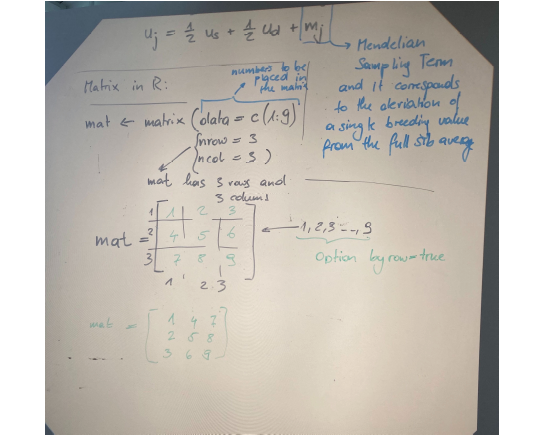 uj = 1/2 us + 1/2 ud + mj
Mendelian
Sampling Term
and it corresponds
to the deviation of
a single breeding value
from the full sib average
Matrix in R:
numbers to be
placed in
the matrix
mat ← matrix (data = c(1:9)
nrow = 3
ncol = 3)
mat has 3 rows and
3 colums
mat =
1 2 3
4 5 6
7 8 9
1
2
3
1 2 3
1,2,3 --., 9
Option byrow=true
mat =
1 4 7
2 5 8
3 6 9